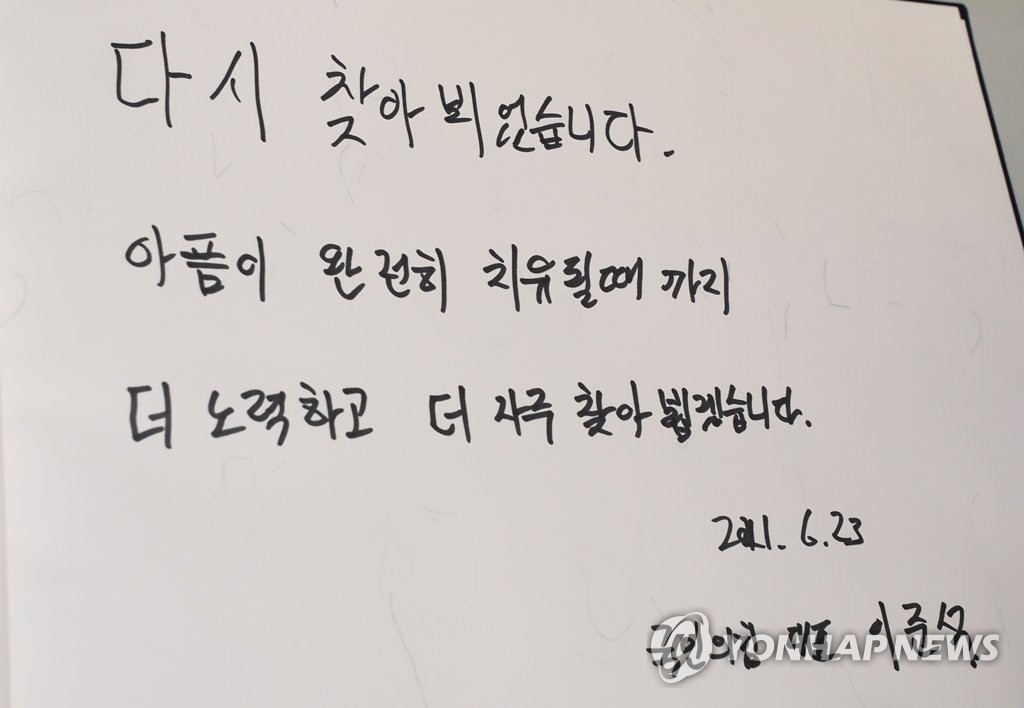 다시 찾아 뵈었습니다.
아픔이 완전히 치유될때 까지
더 노력하고 더 자주 찾아 뵙겠습니다.
2021. 6. 23
국민의힘 대표 이준석
YONHAPNEWS